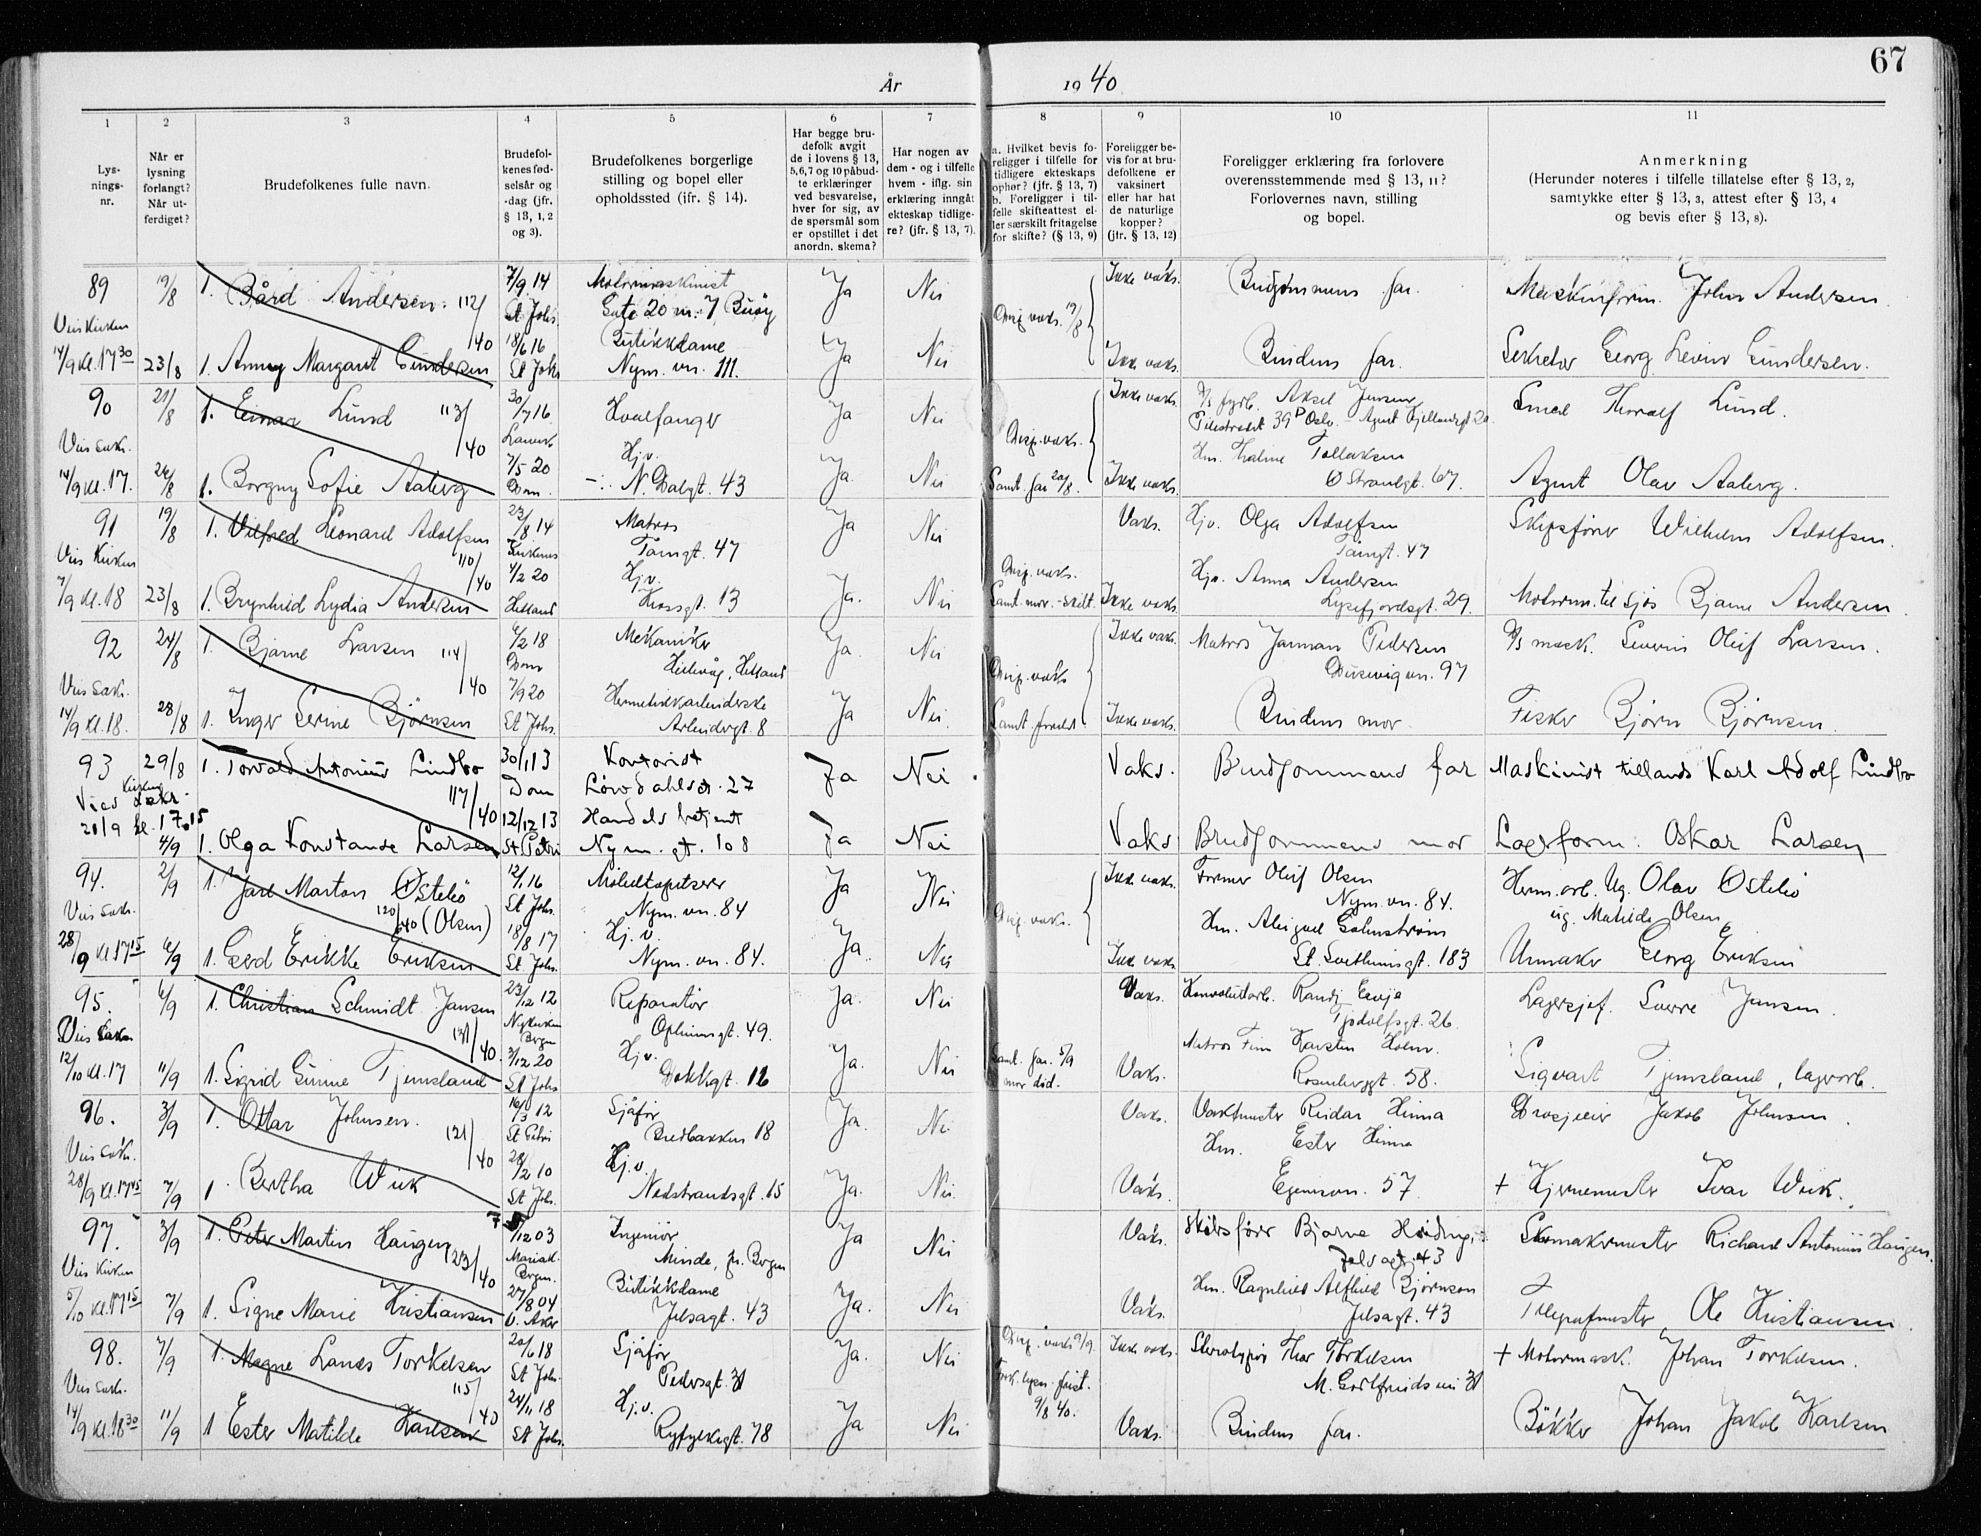 67
År 1940
1 2 3 4 5 6 7 8 9 10 11
Lysnings-nr.
Når er lysning forlangt? Når utferdiget?
Brudefolkenes fulle navn.
Brudefolkenes fødselsår og -dag (jfr. § 13, 1, 2 og 3).
Brudefolkenes borgerlige stilling og bopel eller opholdssted (ifr. § 14).
Har begge brudefolk avgit de i lovens § 13, 5, 6, 7 og 10 påbudte erklæringer ved besvarelse, hver for sig, av de spørsmål som er opstillet i det anordn. skema?
Har nogen av dem - og i tilfelle hvem - iflg. sin erklæring inngåt ekteskap tidligere? (jfr. § 13, 7).
a. Hvilket bevis foreligger i tilfelle for tidligere ekteskaps ophør? (jfr. § 13, 7) b. Foreligger i tilfelle skifteattest eller særskilt fritagelse for skifte? (§ 13, 9)
Foreligger bevis for at brudefolkene er vaksinert eller har hat de naturlige kopper? (jfr. § 13, 12)
Foreligger erklæring fra forlovere overensstemmende med § 13, 11? Forlovernes navn, stilling og bopel.
Anmerkning (Herunder noteres i tilfelle tillatelse efter § 13, 2, samtykke efter § 13, 3, attest efter § 13, 4 og bevis efter § 13, 8).
89 19/8 1. Bård Andersen. 112/40 7/9 14 St. Johs. Motormaskinist Gate 20 nr. 7 Buøy Ja Nei Disp. vaks. 19/8 Ikke vaks. Brudgommens far. Maskinform. John Andersen.
Vies Kirken 14/9 kl. 17 30 23/8 1. Anny Margaret Gundersen 18/6 16 St. Johs Butikkdame Nym. vn. 111. Ja Nei Ikke vaks. Brudens far. Sekretær Georg Levin Gundersen.
90 21/8 1. Einar Lund 113/40 30/7 16 Larvik Hvalfanger Ja Nei Disp. vaks. Ikke vaks. Aksel Jensen Pilestredet 39 Oslo Smed Thoralf Lund.
Vies sakr. 14/9 kl. 17. 26/8 1. Borgny Sofie Aaberg 7/5 20 Dom. Hjv. N. Dalgt. 43 Ja. Nei Samt. far 20/8. Ikke vaks. Hm. Thaline Tollaksen Ø Strandgt. 67. Agent Olav Aaberg.
91 19/8 1. Vilfred Leonard Adolfsen 110/40 23/8 14 Kirkenes Matros Tanngt. 47 Ja Nei Vaks. Hjv. Olga Adolfsen Tanngt. 47 Skipsfører Wilhelm Adolfsen.
Vies Kirken 7/9 kl. 18 23/8 1. Brynhild Lydia Andersen 4/2 20 Hetland Hjv. Krossgt. 13 Ja. Nei Disp. vaks. Samt. mor. - skilt. Ikke vaks. Hjv. Anna Andersen Lysefjordsgt. 29. Motorm. til sjøs Bjarne Andersen.
92 24/8 1. Bjarne Larsen 114/40 6/2 18 Dom Mekaniker Hillevåg, Hetland Ja. Nei Disp. vaks Ikke vaks. Matros Jarman Pedersen Dusevigvn. 97 mask. Severin Oluf Larsen.
Vies sakr. 14/9 kl. 18. 28/8 1. Inger Serine Bjørnsen 7/9 20 St. Johs. Hermetikkarbeiderske Arbeidergt. 8 Ja Nei. Samt foreldr. Ikke vaks. Brudens mor. Fisker Bjørn Bjørnsen.
93 29/8 1. Torvald Antonius Lindbo 117/40 30/1 13 Dom Kontorist Løvdahlsst. 27 Ja Nei. Vaks. Brudgommens far Maskinist tillands Karl Adolf Lindbo
Vies Kirken Sakr. 21/9 kl. 17.15 4/9 1. Olga Konstanse Larsen 12/12 13 St. Petri Handelsbetjent Nym. gt. 108 Ja Nei Vaks Brudgommens mor Lagerform. Oskar Larsen
94. 2/9 1. Jarl Marton Østebø 120/40 (Olsen) 12/1 16 St. Johs. Møbeltapetserer Nym. vn. 84 Ja Nei Disp. vaks. Ikke vaks. Former Oluf Olsen Nym. vn. 84. Herm. arb. Ug. Olav Østebø ug. Matilde Olsen
Vies sakr. 28/9 kl 17 15 6/9 1. Gerd Erikke Eriksen 18/8 17 St. Johs. Hj. v. Nym. vn. 84. Ja. Nei Ikke vaks. Hm. Abigael Holmstrøm St. Svithunsgt. 183 Urmaker Georg Eriksen
95. 6/9 1. Christian Schmidt Jansen 131/40 23/12 12 Nykirken Bergen Reparatør Opheimsgt. 49. Ja. Nei Vaks. Konvoluttarb. Randi Eeuje Tjodolfsgt. 26. Lagersjef. Sverre Jansen.
Vies Sakr 12/10 kl. 17 11/9 1. Sigrid Gunne Tjemsland 3/12 20 St. Johs Hj. v. Dokkgt. 12 Ja. Nei Samt. far. 5/9 mor død. Vaks. Matros Finn Karsten Holm. Rosenberggt. 58. Sigvart Tjemsland, lagerarb.
96. 3/9 1. Ottar Johnsen. 121/40 16/3 12 St. Petri Sjåfør Bredbakken 18 Ja. Nei Vaks. Vaktmester Reidar Hinna Drosjeeier Jakob Johnsen.
Vies sakr. 28/9 kl. 17 45 7/9 1. Bertha Wiik 28/2 10 St. Johs. Hj. v. Nedstrandsgt. 15 Ja. Nei. Vaks. Hm. Ester Hinna Egenesvn. 57 + Gjernemester Ivar Wiik.
97. 3/9 1. Peter Martin Haugen 123/40 7/12 03 Mariak. Bergen. Ingeniør Minde, pr. Bergen Ja Nei Vaks. Skibsfører Bjarne Jelsagt. 43 Skomakermester Richard Antonius Haugen.
Vies Kirken 5/10 kl. 17 15 7/9 1. Signe Marie Kristiansen 27/8 04 V. Aker Butikkdame Jelsagt. 43 Ja. Nei Vaks. Hm. Ragnhild Alfhild Bjørnson Jelsagt. 43 Telegrafmester Ole Kristiansen.
98. 7/9 1. Magne Lanes Torkelsen 115/40 20/6 18 St. Johs. Sjåfør Pedersgt. 31 Ja. Nei Disp. vaks 9/9. Ikke vaks. Stereotypør Thor Torkelsen M. Godtfredsens vei 31 + Motormask. Johan Torkelsen.
Vies sakr. 14/9 kl. 18 30 11/9 1 Ester Matilde Karlsen 24/11 18 St. Johs. Hj. v. Ryfylkegt. 78 Ja Nei Fork. lysn. frist. 9/8 40. Vaks. Brudens far. Bøkker Johan Jakob Karlsen